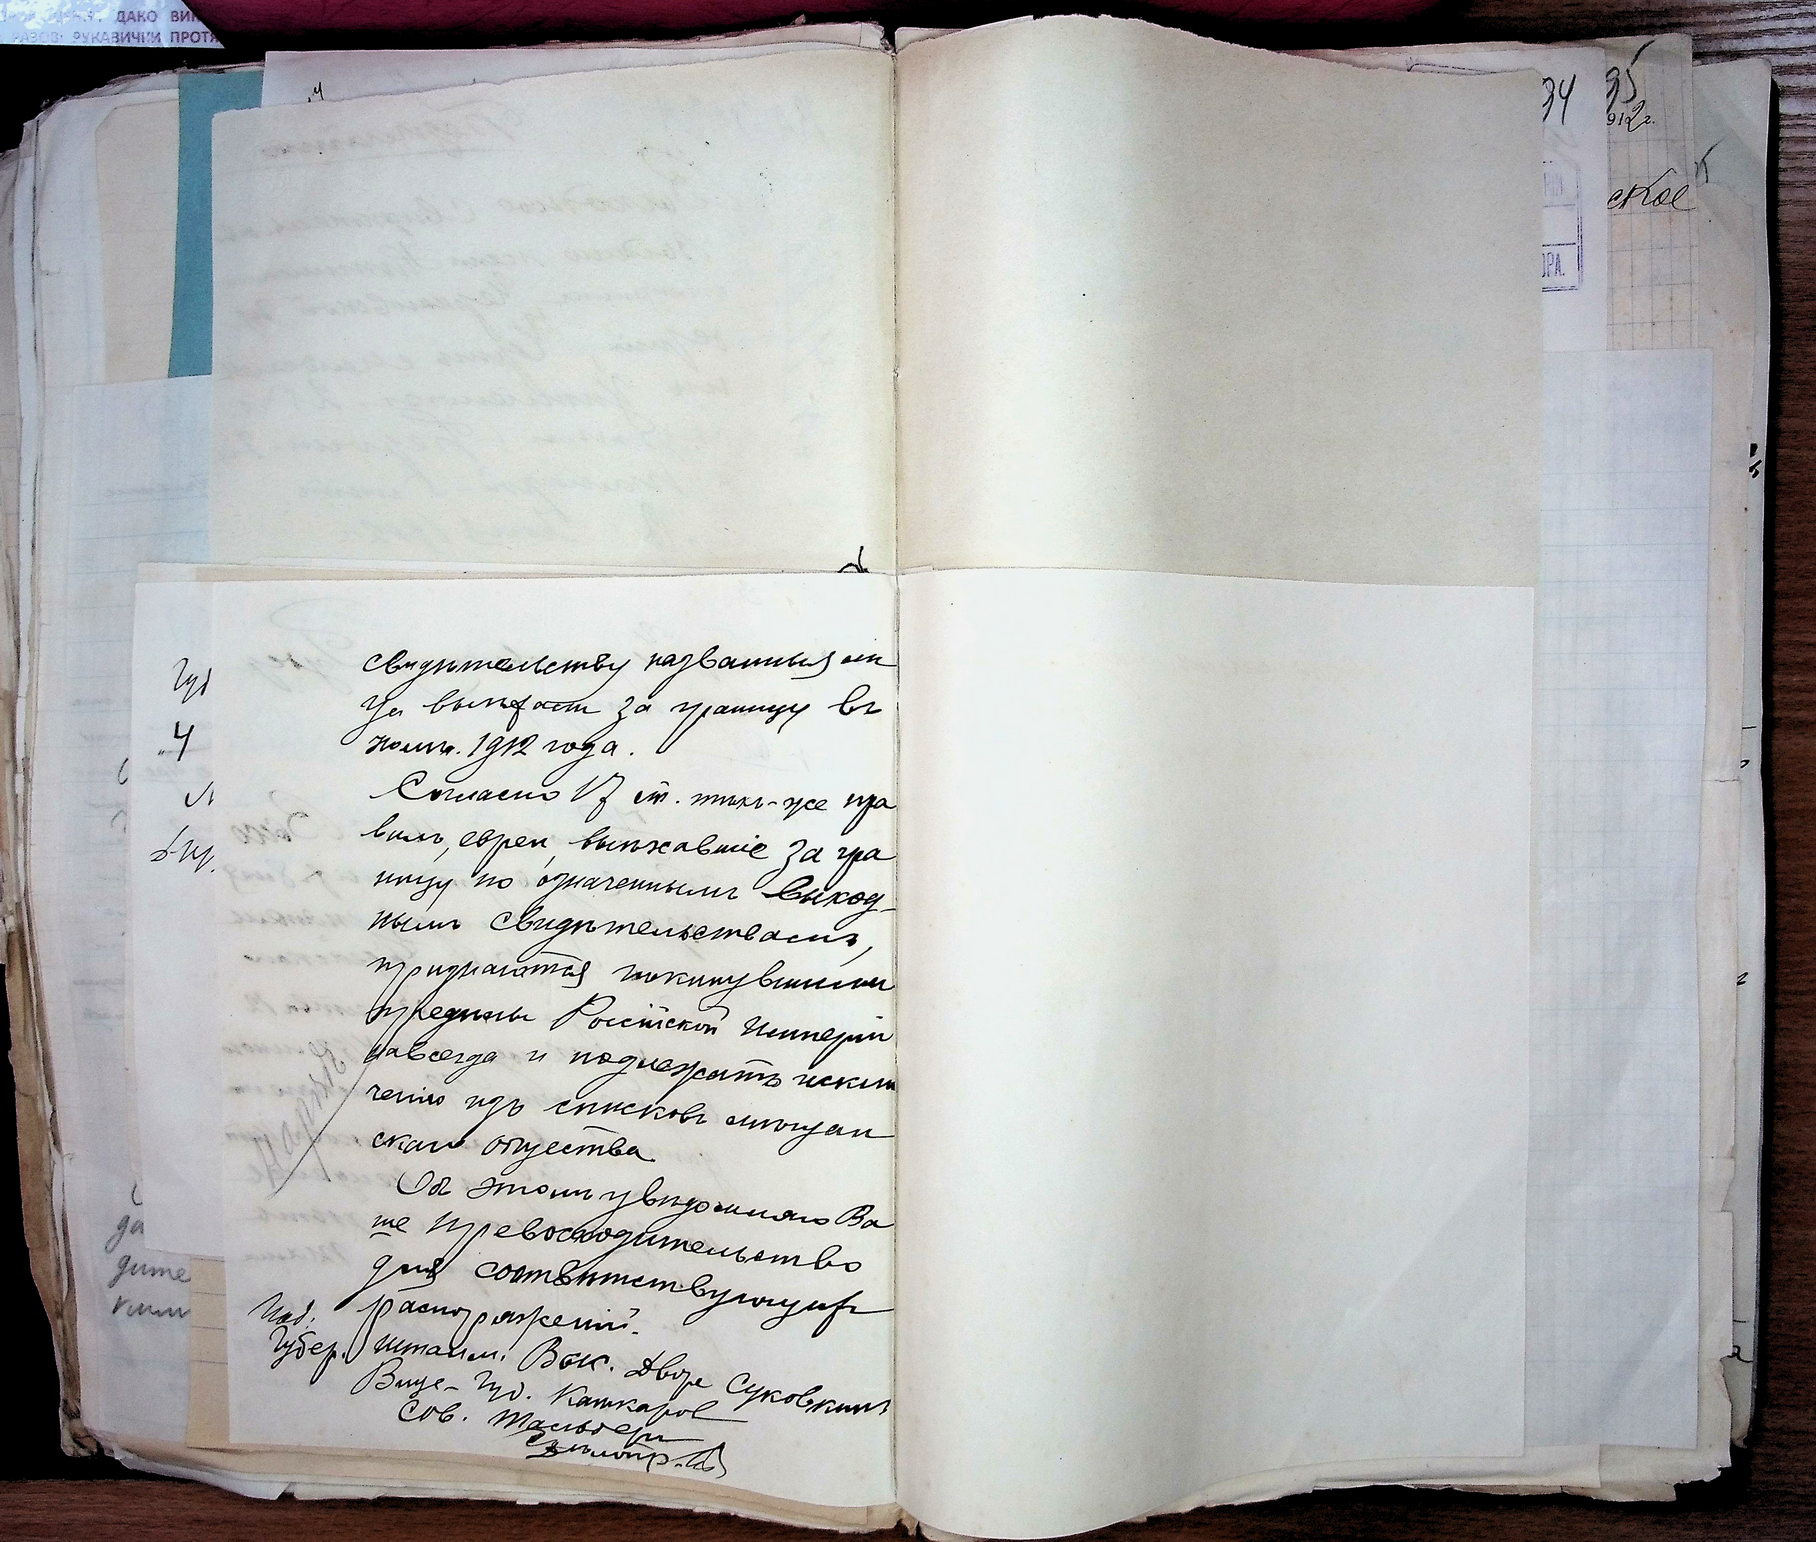 ДАКО ВИК
РАЗОВІ РУКАВИЧКИ ПРОТЯ
34
35
912г.
ское
ОРА.
свидѣтельству названныя ли
ца выѣхали за границу въ
1912 года.
Согласно 17 ст. тѣхъ-же пра
вилъ, евреи, выѣхавшіе за гра
ницу по означеннымъ выход-
нымъ свидѣтельствамъ,
признаются покинувшими
предѣлы Россійской Имперіи
навсегда и подлежатъ исклю
ченію изъ списковъ мѣщан
скаго общества.
Объ этомъ увѣдомляю Ва
ше Превосходительство
для соотвѣтствующихъ
распоряженій.
Под:
Губер. Шталм. Выс. Двора Суковкинъ
Вице-Губ. Кашкаровъ
Сов.
Дѣлопр.
Губ
4
да
дите